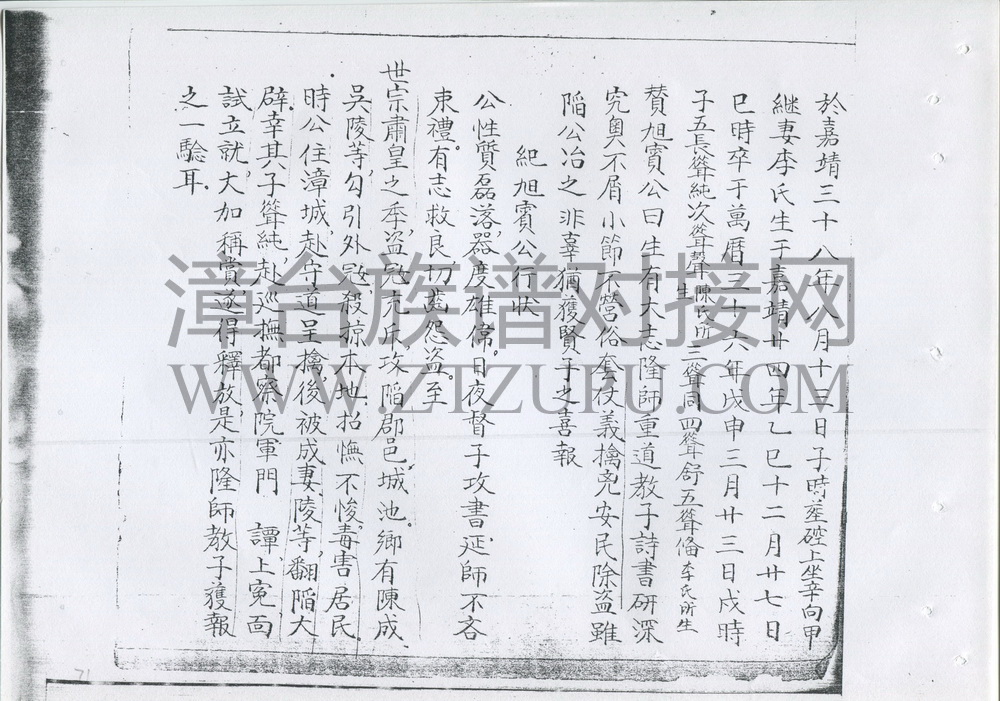 於嘉靖三十八年八月十三日子時塟硿上坐辛向甲
継妻李氏生于嘉靖廿四年乙巳十二月廿七日
巳時卒于萬曆三十六年戊申三月廿三日戍時
子五長聳純次聳聲陳氏所生三聳同四聳舒五聳俻李氏所生
賛旭賓公曰生有大志隆師重道教子詩書研深
究奥不屑小節不營俗套仗義擒兇安民除盗雖
陷公冶之非辜猶獲賢子之喜報
紀旭賓公行状
公性質磊落,器度雄偉。日夜督子攻書,延師不吝
束禮。有志救良,切蓝怨盗。至
世宗肅皇之季,盗冦充斥,攻陷郡邑、城池。鄉有陳成、
吳陵等,勾引外冦,殺掠本地,招憮不悛,毒害居民.
時公住漳城,赴守道呈擒,後被成妻、陵等,翻陷大
辟.幸其子聳純,赴巡撫都察院軍門 譚、上寃面
試立就,大加稱賞,遂得釋放,是亦隆師教子獲報
之一驗耳.
漳台族谱对接网
WWW.ZTZUPU.COM
71